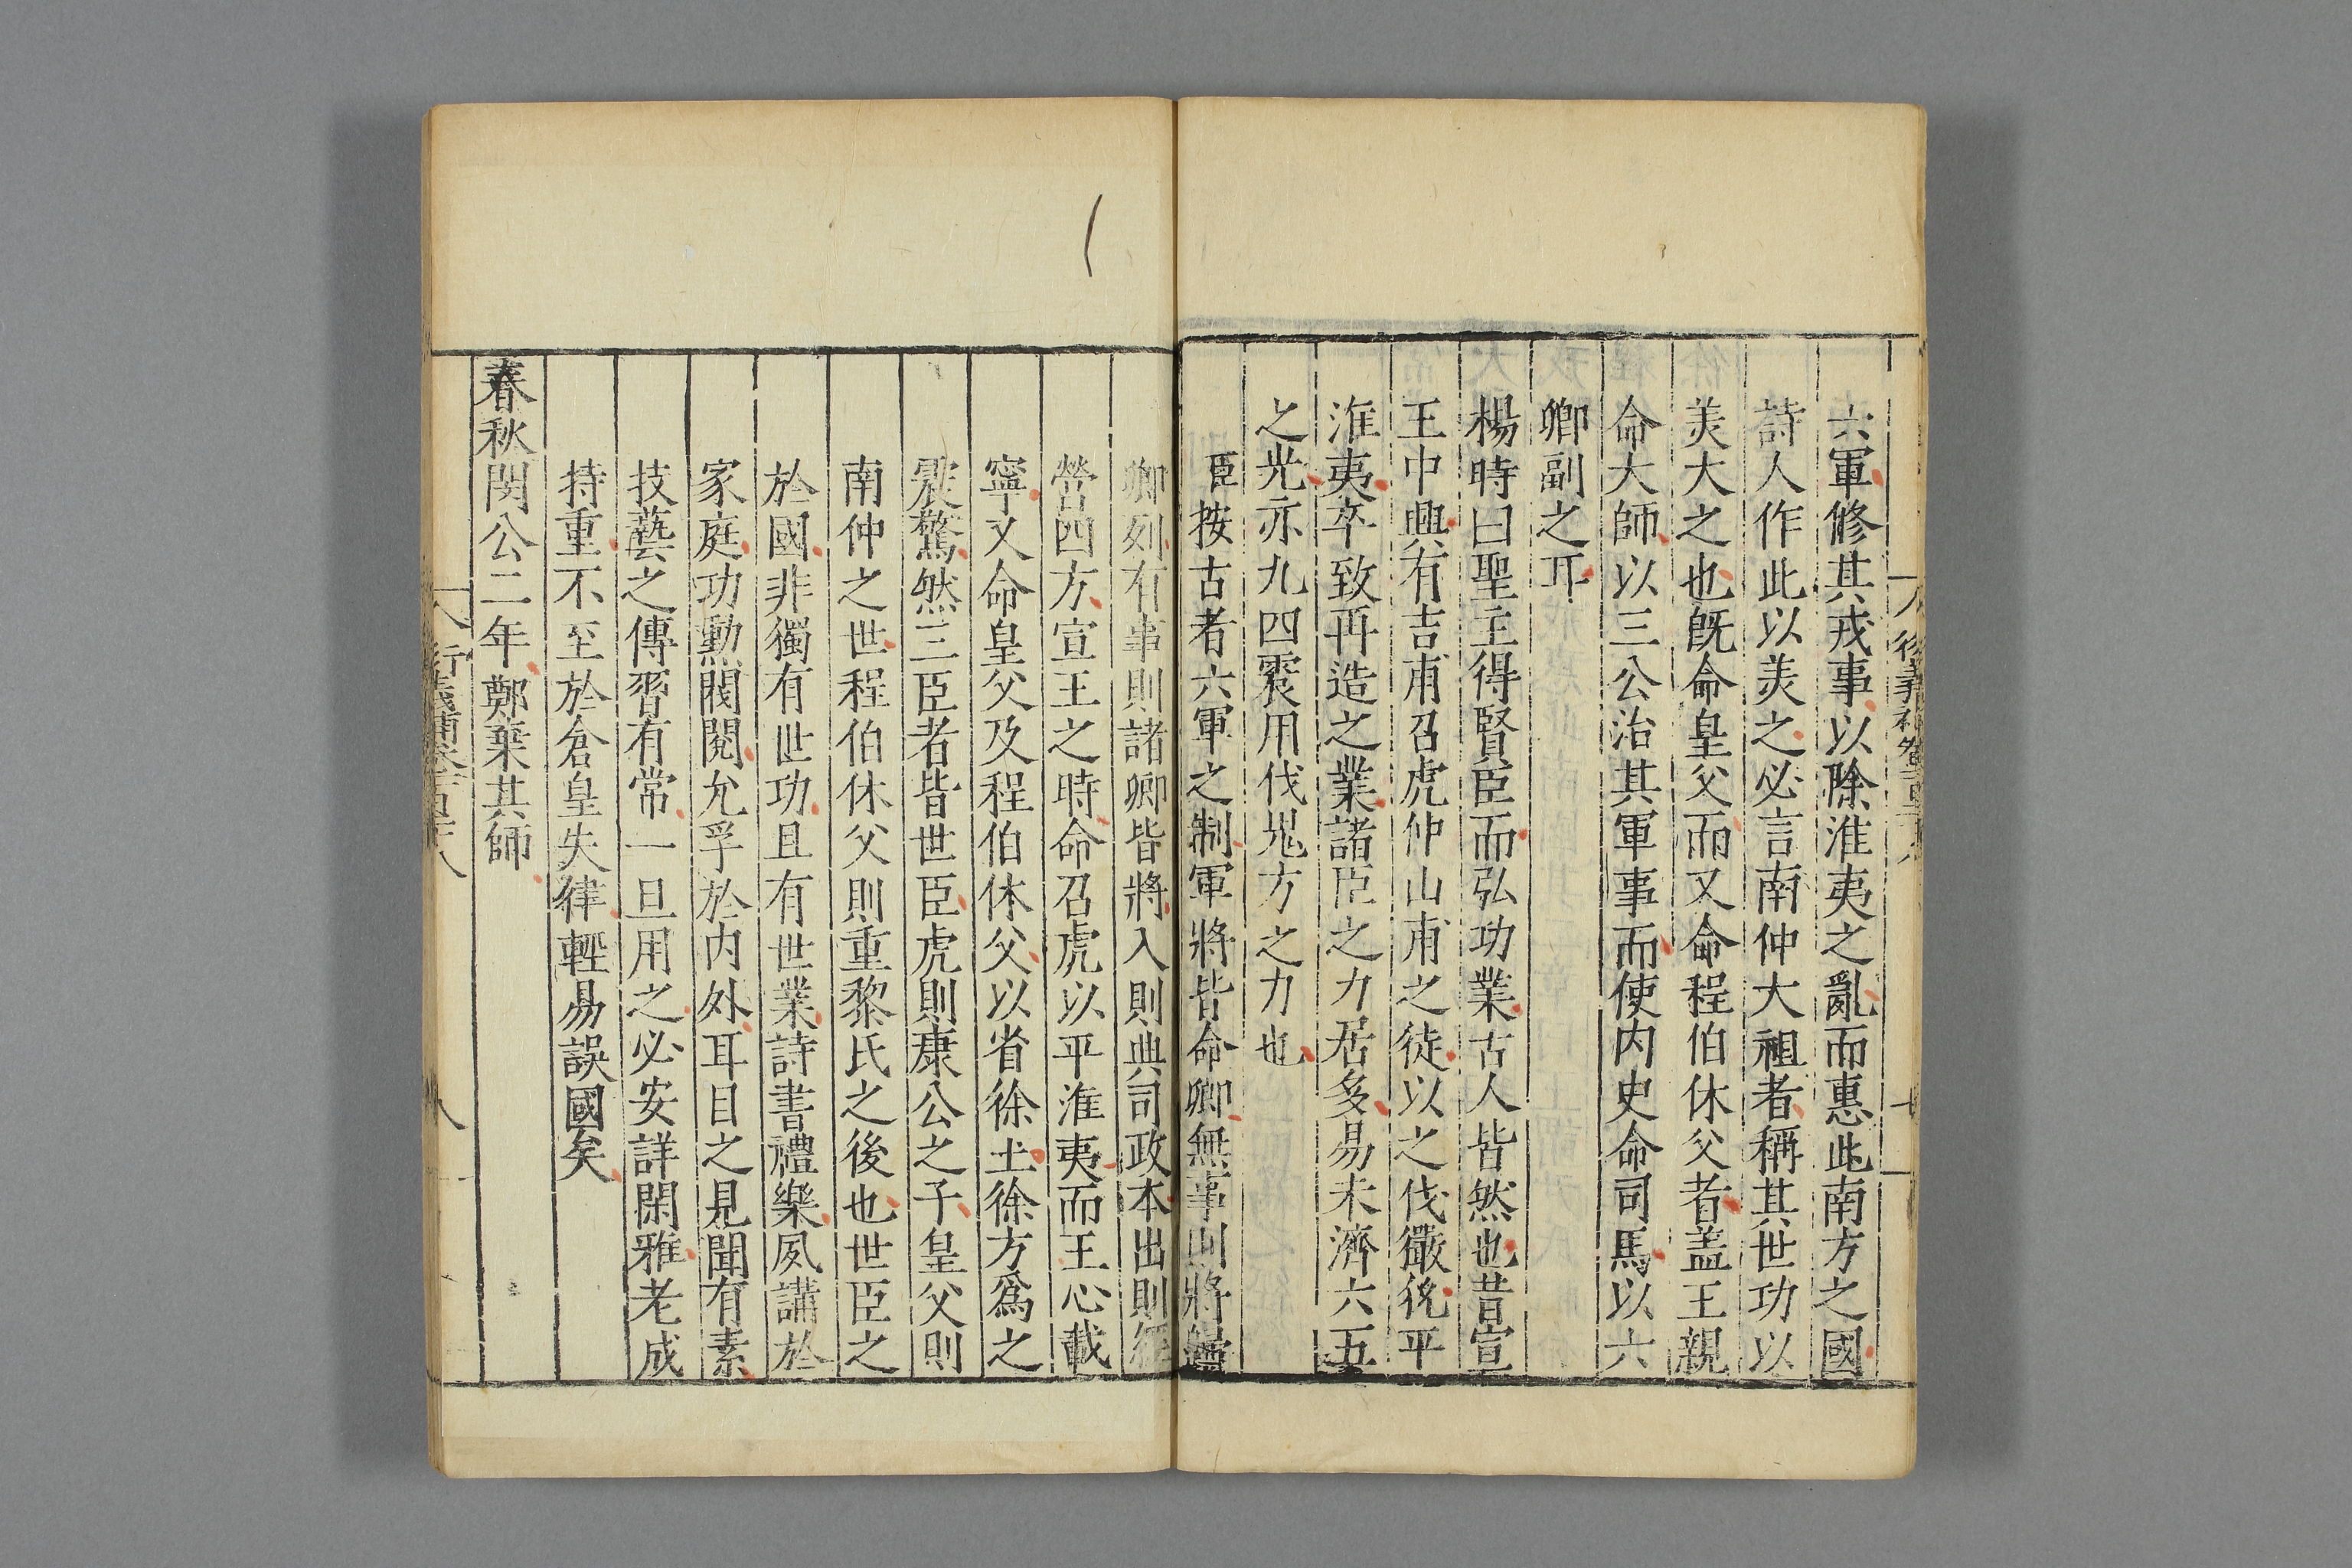 六軍修其戎事以除淮夷之亂而惠此南方之國
詩人作此以羙之必言南仲大祖者稱其世功以
羙大之也旣命皇父而又命程伯休父者盖王親
命大師以三公治其軍事而使内史命司馬以六
卿副之耳
楊時曰聖主得賢臣而弘功業古人皆然也昔宣
王中興有吉甫召虎仲山甫之徒以之伐玁狁平
淮夷卒致再造之業諸臣之力居多易未濟六五
之光亦九四震用伐鬼方之力也
臣按古者六軍之制軍將皆命卿無事則將歸
卿列有事則諸卿皆將入則典司政本出則經
營四方宣王之時命召虎以平淮夷而王心載
寧又命皇父及程伯休父以省徐土徐方爲之
震驚然三臣者皆世臣虎則康公之子皇父則
南仲之世程伯休父則重黎氏之後也世臣之
於國非獨有世功且有世業詩書禮樂夙講於
家庭功勳閥閱允孚於内外耳目之見聞有素
技藝之傳習有常一旦用之必安詳閑雅老成
持重不至於倉皇失律輕易誤國矣
春秋閔公二年鄭棄其師